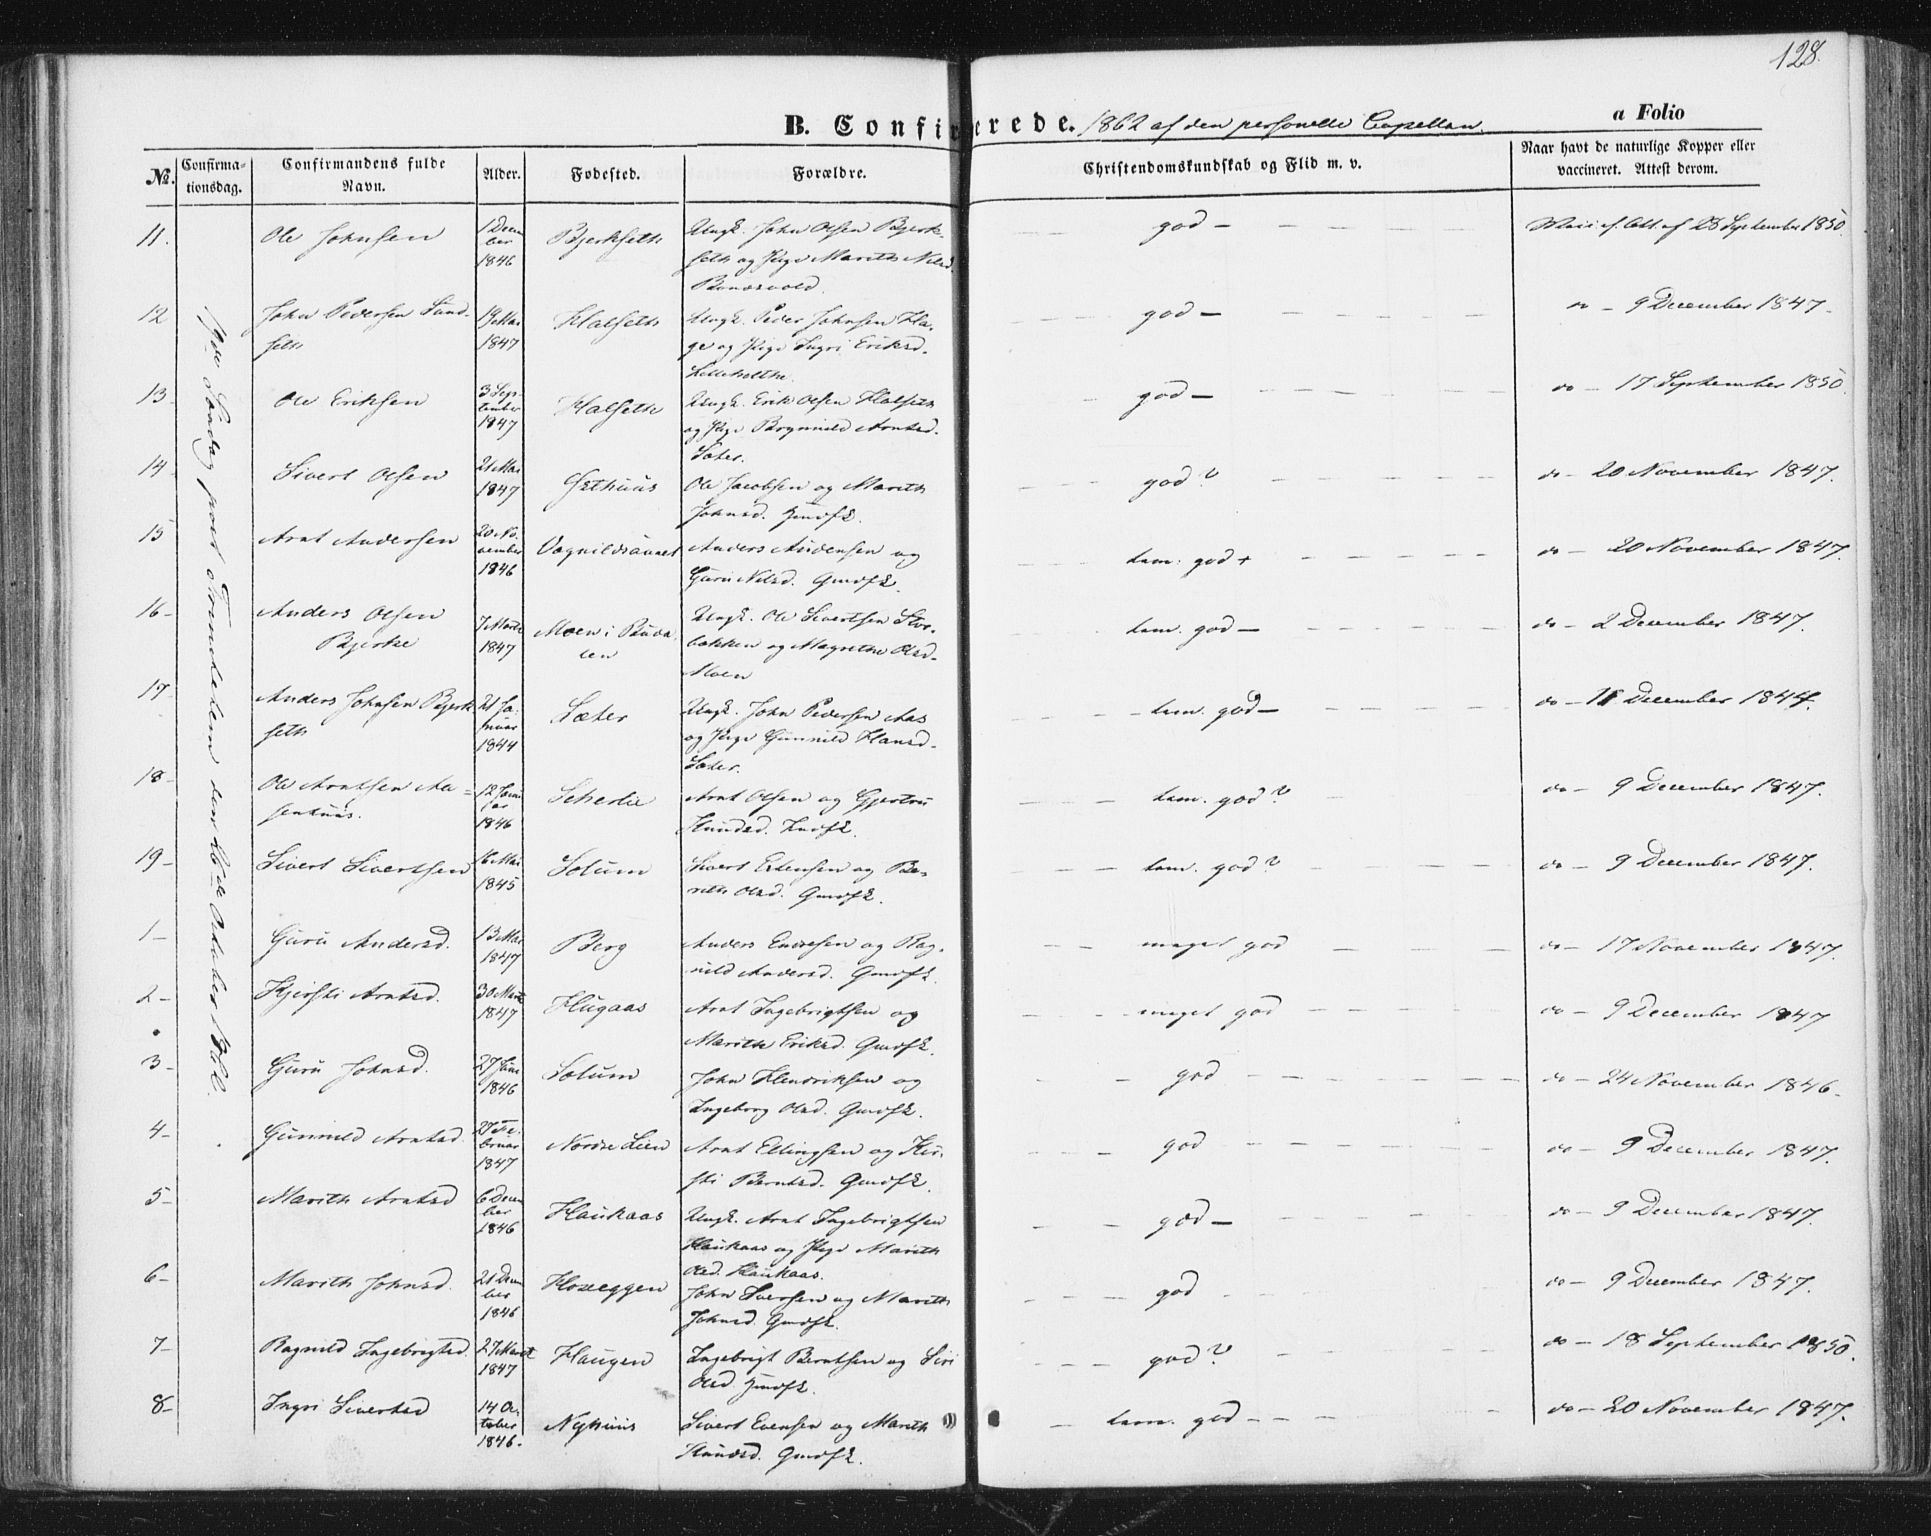 128.
B. Confirmerede. 1862 af den personelle Capellan. a Folio
No. Confirmationsdag. Confirmandens fulde Navn. Alder. Fødested. Forældre. Christendomskundskab og Flid m. v. Naar havt de naturlige Kopper eller vaccineret. Attest derom.
Søndag post Trinitatem den 26de October 1862.
11. Ole Johnsen 1 December 1846 Bjerkseth Ungk. John Olsen Bjerkseth og Pige Marith Nilsd. god – Att. af 28 September 1850.
12 John Pedersen Sundseth 19 Mai 1847 Halseth Ungk. Peder Johnsen Hage og Pige Ingri Eriksd. god – do – 9 December 1847.
13 Ole Eriksen 3 September 1847 Halseth Ungk. Erik Olsen Halseth og Pige Brynild Arntsd. Sæter. god – do – 17 September 1850
14 Sivert Olsen 21 Mai 1847 Østhuus Ole Jacobsen og Marith Johnsd. god ? do – 20 November 1847.
15 Arnt Andersen 20 November 1846 Vognildsaunet Anders Andersen og Guru Nilsd. Gmdfk. tem. god + do – 20 November 1847.
16 – Anders Olsen Bjerke 7 Marts 1847 Moen i Budalen Ungk. Ole Sivertsen Storbakken og Magrethe Olsd. Moen tem. god – do – 2 December 1847.
17 Anders Johnsen Bjerkseth 21 Januar 1844 Sæter Ungk. John Pedersen Aas og Pige Gunnild Hansd. Sæter. tem. god – do – 11 December 1844.
18 – Ole Arntsen Aasenhuus. 12 Januar 1846 Arnt Olsen og Gjertru tem. god ? do – 9 December 1847.
19 – Sivert Sivertsen 16 Mai 1845 Solum Sivert Estensen og Berith Olsd. Gmdfk. tem. god ? do – 9 December 1847.
1 – Guru Andersd. 13 Mai 1847 Berg Anders Endresen og Ragnild Andersd. Gmdfk. meget god do – 17 November 1847.
2 – Kjersti Arntsd. 30 Marts 1847 Hugaas Arnt Ingebrigtsen og Marith Eriksd. Gmdfk. meget god do – 9 December 1847
3 – Guru Johnsd. 27 1846 Solum John Henriksen og Ingeborg Olsd. Gmdfk. god do – 24 November 1846.
4 – Gunnild Arntsd. 27 Februar 1847 Nordre Lien Arnt Ellingsen og Kirsti Berntsd. Gmdfk. god do – 9 December 1847.
5 – Marith Arntsd 6 December 1846 Haukaas Ungk. Arnt Ingebrigtsen Haukaas og Pige Marith Olsd. Haukaas. god – do – 9 December 1847.
6 – Marith Johnsd. 21 December 1846 Hoseggen John Iversen og Marith Johnsd. Gmdfk. god do – 9 December 1847.
7 – Ragnild Ingebrigtsd. 27 Marts 1847 Haugen Ingebrigt Berntsen og Siri Olsd. god ? do – 18 September 1850.
8 – Ingri Sivertsd 14 October 1846. Nyhuus Sivert Evensen og Marith Gmdfk. tem. god – do – 20 November 1847.